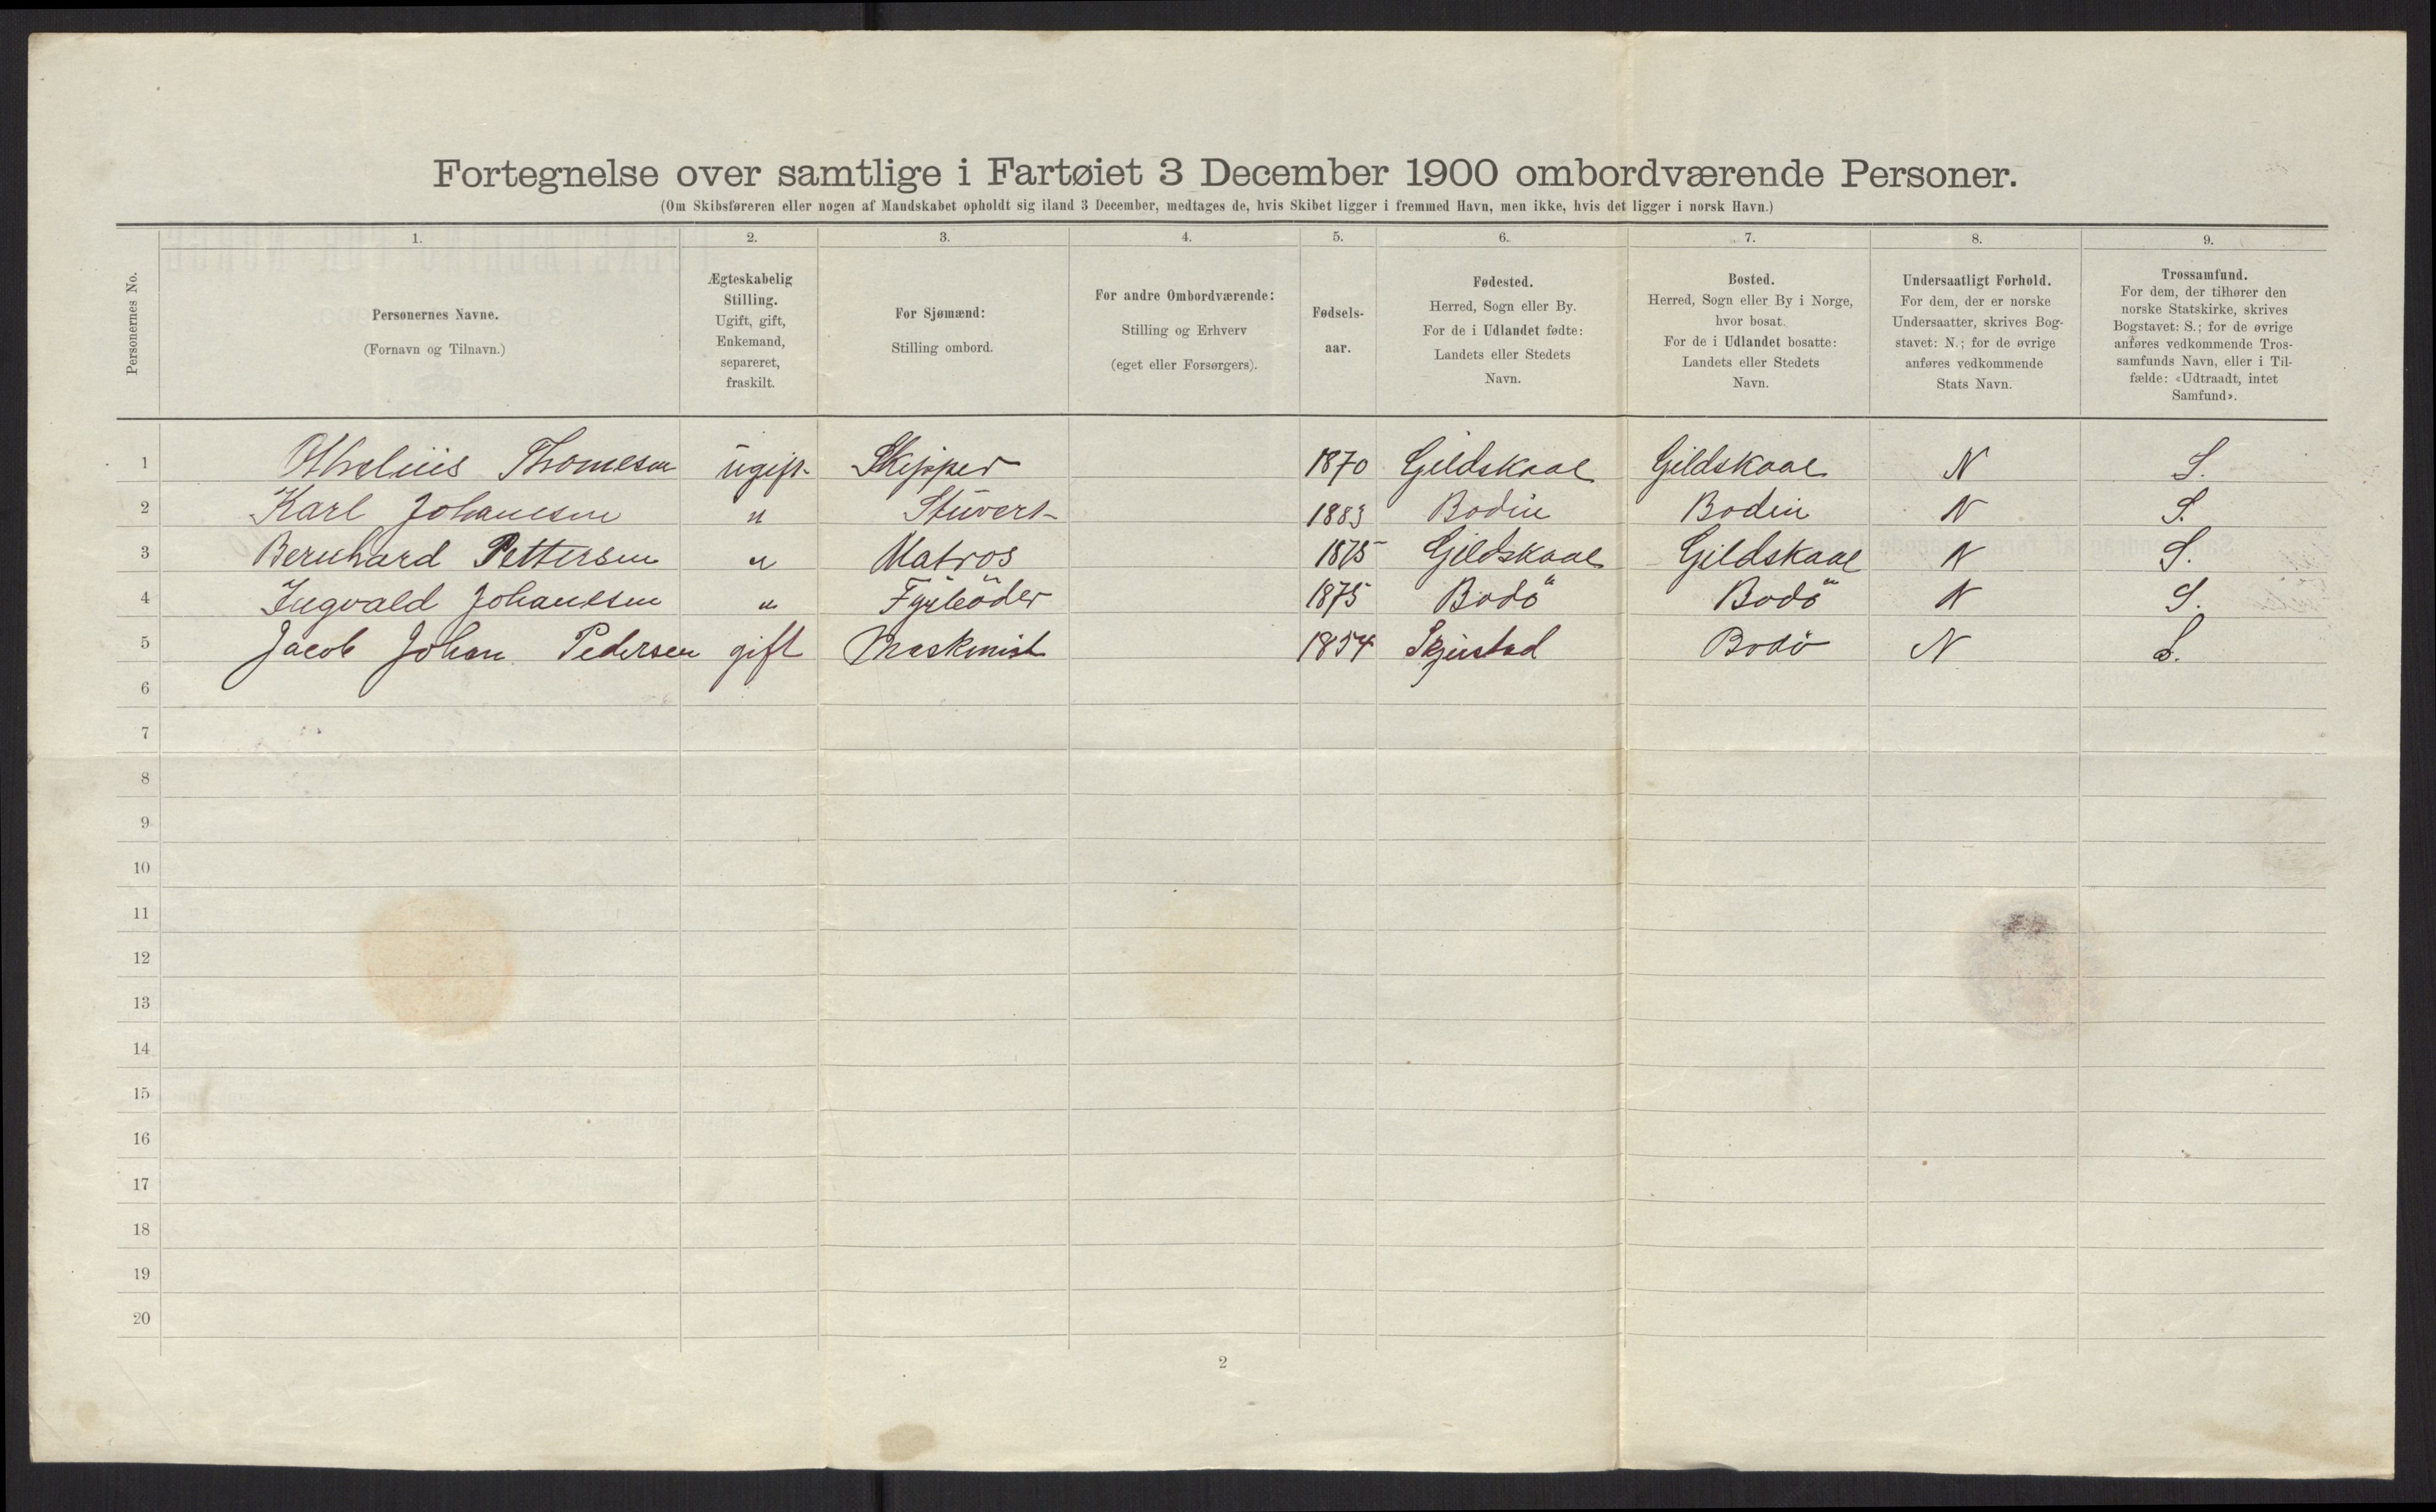 Fortegnelse over samtlige i Fartøiet 3 December 1900 ombordværende Personer.
(Om Skibsføreren eller nogen af Mandskabet opholdt sig iland 3 December, medtages de, hvis Skibet ligger i fremmed Havn, men ikke, hvis det ligger i norsk Havn.)
Personernes No.
1. 2. 3. 4. 5. 6. 7. 8. 9.
Personernes Navne.
(Fornavn og Tilnavn.)
Ægteskabelig
Stilling.
Ugift, gift,
Enkemand,
separeret,
fraskilt.
For Sjømænd:
Stilling ombord.
For andre Ombordværende:
Stilling og Erhverv
(eget eller Forsørgers).
Fødsels-
aar.
Fødested.
Herred, Sogn eller By.
For de i Udlandet fødte:
Landets eller Stedets
Navn.
Bosted.
Herred, Sogn eller By i Norge,
hvor bosat.
For de i Udlandet bosatte:
Landets eller Stedets
Navn.
Undersaatligt Forhold.
For dem, der er norske
Undersaatter, skrives Bog-
stavet: N.; for de øvrige
anføres vedkommende
Stats Navn.
Trossamfund.
For dem, der tilhører den
norske Statskirke, skrives
Bogstavet: S.; for de øvrige
anføres vedkommende Tros-
samfunds Navn, eller i Til-
fælde: «Udtraadt, intet
Samfund».
1 Thomesen ugift Skipper 1870 Gildskaal Gildskaal N S.
2 Karl Johansen " Stuvert 1883 Bodin Bodin N S.
3 Bernhard Pettersen " Matros 1875 Gildskaal Gildskaal N S.
4 Ingvald Johansen " Fyrböder 1875 Bodö Bodö N S.
5 Jacob Johan Pedersen gift Maskinist 1854 Skjerstad Bodö N S.
6
7
8
9
10
11
12
13
14
15
16
17
18
19
20
2